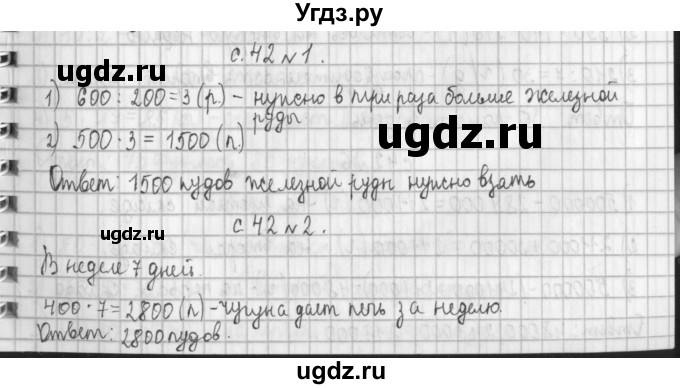 Угдз.ру
с. 42 № 1.
1) 600 : 200 = 3 (р.) – нужно в три раза больше железной
руды
2) 500 · 3 = 1500 (п)
Ответ: 1500 пудов железной руды нужно взять
с 42 № 2.
В неделе 7 дней.
400 · 7 = 2800 (п) – чугуна дает печь за неделю.
Ответ: 2800 пудов.
ugdz.ru
ugdz.ru
ugdz.ru
ugdz.ru
ugdz.ru
ugdz.ru